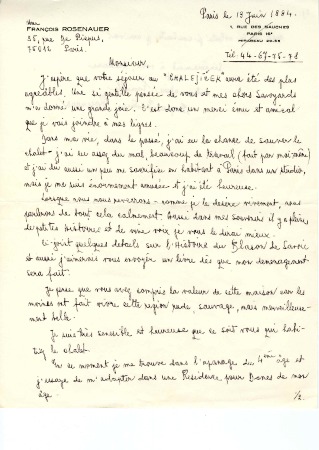 Paris le 13 Juin 1994.
Mme
FRANÇOIS ROSENAUER
35, rue De Picpus,
75012 Paris.
1, RUE DES BAUCHES
PARIS 16e
Tél. 44-67-75-78
Monsieur,
J'espère que votre séjour au "CHALEJIEEK" aura été des plus
agréables. Une si gentille pensée de vous et mes chers Savoyards
m'a donné une grande joie. C'est donc un merci ému et amical
que je vais joindre à mes lignes.
Dans ma vie, dans le passé, j'ai eu la chance de sauver le
chalet - j'ai eu assez du mal, beaucoup de travail (fait par moi-même)
et j'ai dû aussi un peu me sacrifier en habitant à Paris dans un studio,
mais je me suis énormément amusée et j'ai été heureuse.
Lorsque nous nous reverrons - comme je le désire vivement, nous
parlerons de tout cela calmement. Aussi dans mes souvenirs il y a plein
de petites histoires et de vive voix je vous le dirai mieux.
Ci-joint quelques détails sur l'Histoire du Blason de Savoie
et aussi j'aimerais vous envoyer un livre dès que mon déménagement
sera fait.
Je pense que vous avez compris la valeur de cette maison car les
moines ont fait vivre cette région rude, sauvage, mais merveilleuse-
ment belle.
Je suis très sensible et heureuse que ce soit vous qui habi-
tiez le chalet.
En ce moment je me trouve dans l'apanage du 4ème âge et
j'essaye de m'adapter dans une Résidence pour Dames de mon
âge.
1/2.